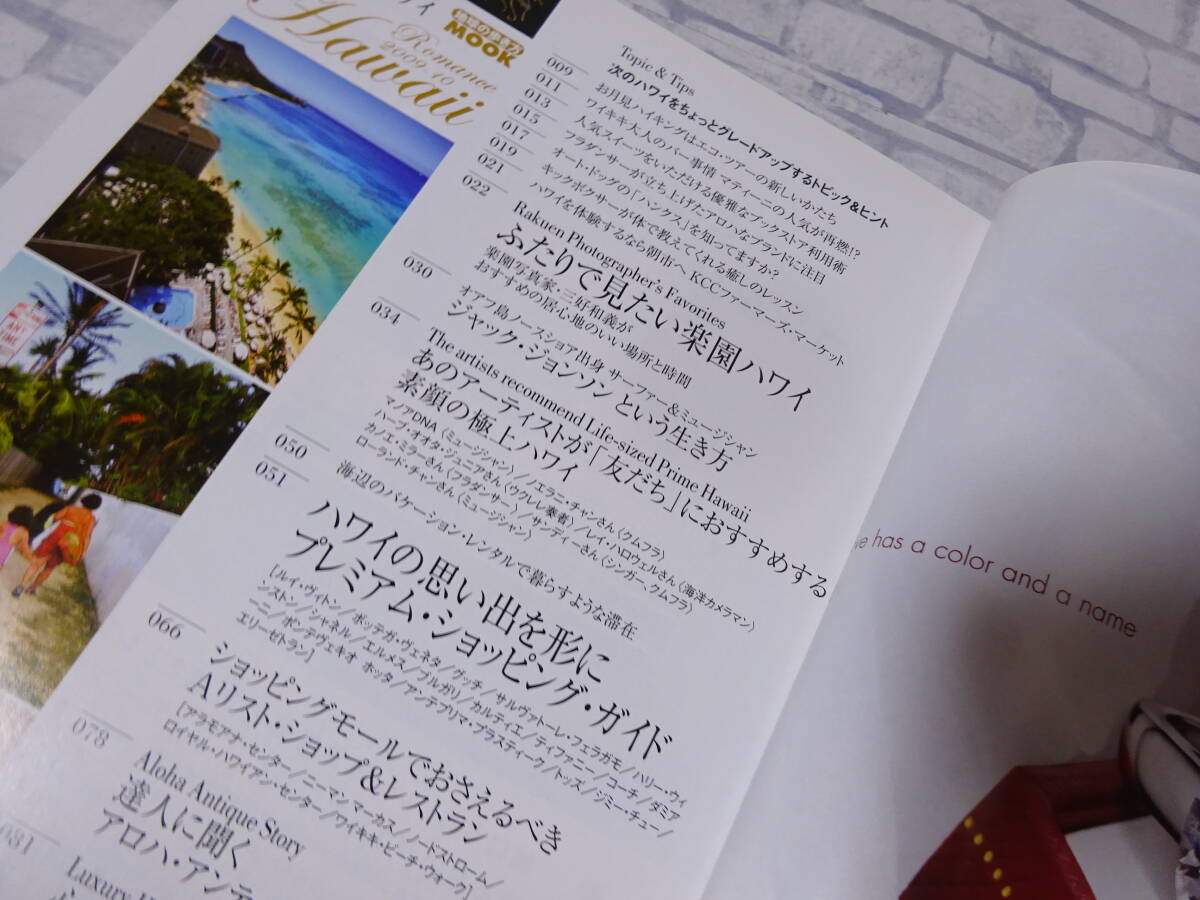 地球の歩き方
MOOK
Romance
2009-10
Hawaii
ANY
TIME
Topic & Tips
次のハワイをちょっとグレードアップするトピック&ヒント
009
お月見ハイキングはエコ・ツアーの新しいかたち
011
ワイキキ大人のバー事情 マティーニの人気が再燃!?
013
人気スイーツをいただける優雅なブックストア利用術
015
フラダンサーが立ち上げたアロハなブランドに注目
017
オート・ドッグの「ハンクス」を知ってますか?
019
キックボクサーが体で教えてくれる癒しのレッスン
021
ハワイを体験するなら朝市へ KCCファーマーズ・マーケット
022
Rakuen Photographer's Favorites
ふたりで見たい楽園ハワイ
楽園写真家・三好和義が
おすすめの居心地のいい場所と時間
030
オアフ島ノースショア出身 サーファー&ミュージシャン
ジャック・ジョンソンという生き方
034
The artists recommend Life-sized Prime Hawaii
あのアーティストが「友だち」におすすめする
素顔の極上ハワイ
マノアDNA〈ミュージシャン〉/エラニ・チャンさん〈クムフラ〉
ハーブ・オオタ・ジュニアさん〈ウクレレ奏者〉/レイ・ハロウェルさん〈海洋カメラマン〉
カノエ・ミラーさん〈フラダンサー〉/サンディーさん〈シンガー、クムフラ〉
ローランド・チャンさん〈ミュージシャン〉
050
海辺のバケーション・レンタルで暮らすような滞在
051
ハワイの思い出を形に
プレミアム・ショッピング・ガイド
[ルイ・ヴィトン/ボッテガ・ヴェネタ/グッチ/サルヴァトーレ・フェラガモ/ハリー・ウィ
ンストン/シャネル/エルメス/ブルガリ/カルティエ/ティファニー/コーチ/ダミア
ーニ/ポンテヴェキオ ホッタ/アンテプリマ・プラスティーク/トッズ/ジミー・チュー/
エリーゼトラン]
066
ショッピングモールでおさえるべき
Aリスト・ショップ&レストラン
[アラモアナ・センター/ニーマンマーカス/ノードストローム/
ロイヤル・ハワイアン・センター/ワイキキ・ビーチ・ウォーク]
078
Aloha Antique Story
達人に聞く
アロハ・アンテ
081
Luxury
has a color and a name